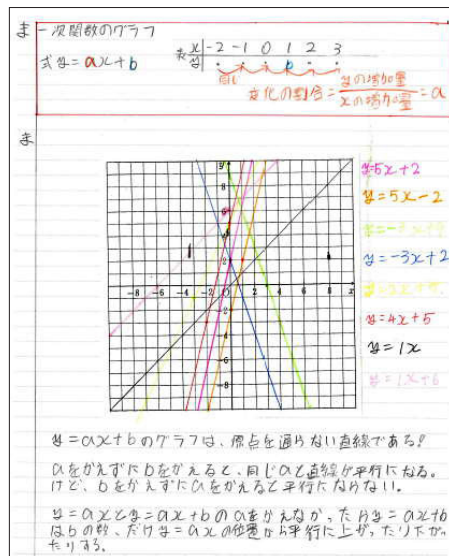 ま 一次関数のグラフ
式 y=ax+b
表 x -2 -1 0 1 2 3
y b
同じ
変化の割合= yの増加量 / xの増加量 =a
ま
y=5x+2
y=5x-2
y=-3x+2
y=4x+5
y=1x
y=1x+6
y=ax+bのグラフは、原点を通らない直線である!
aをかえずにbをかえると、同じaと直線が平行になる。
けど、bをかえずにaをかえると平行にならない。
y=axとy=ax+bのaをかえなかったらy=ax+b
はbの数、だけy=axの位置から平行に上がったり下がっ
たりする。